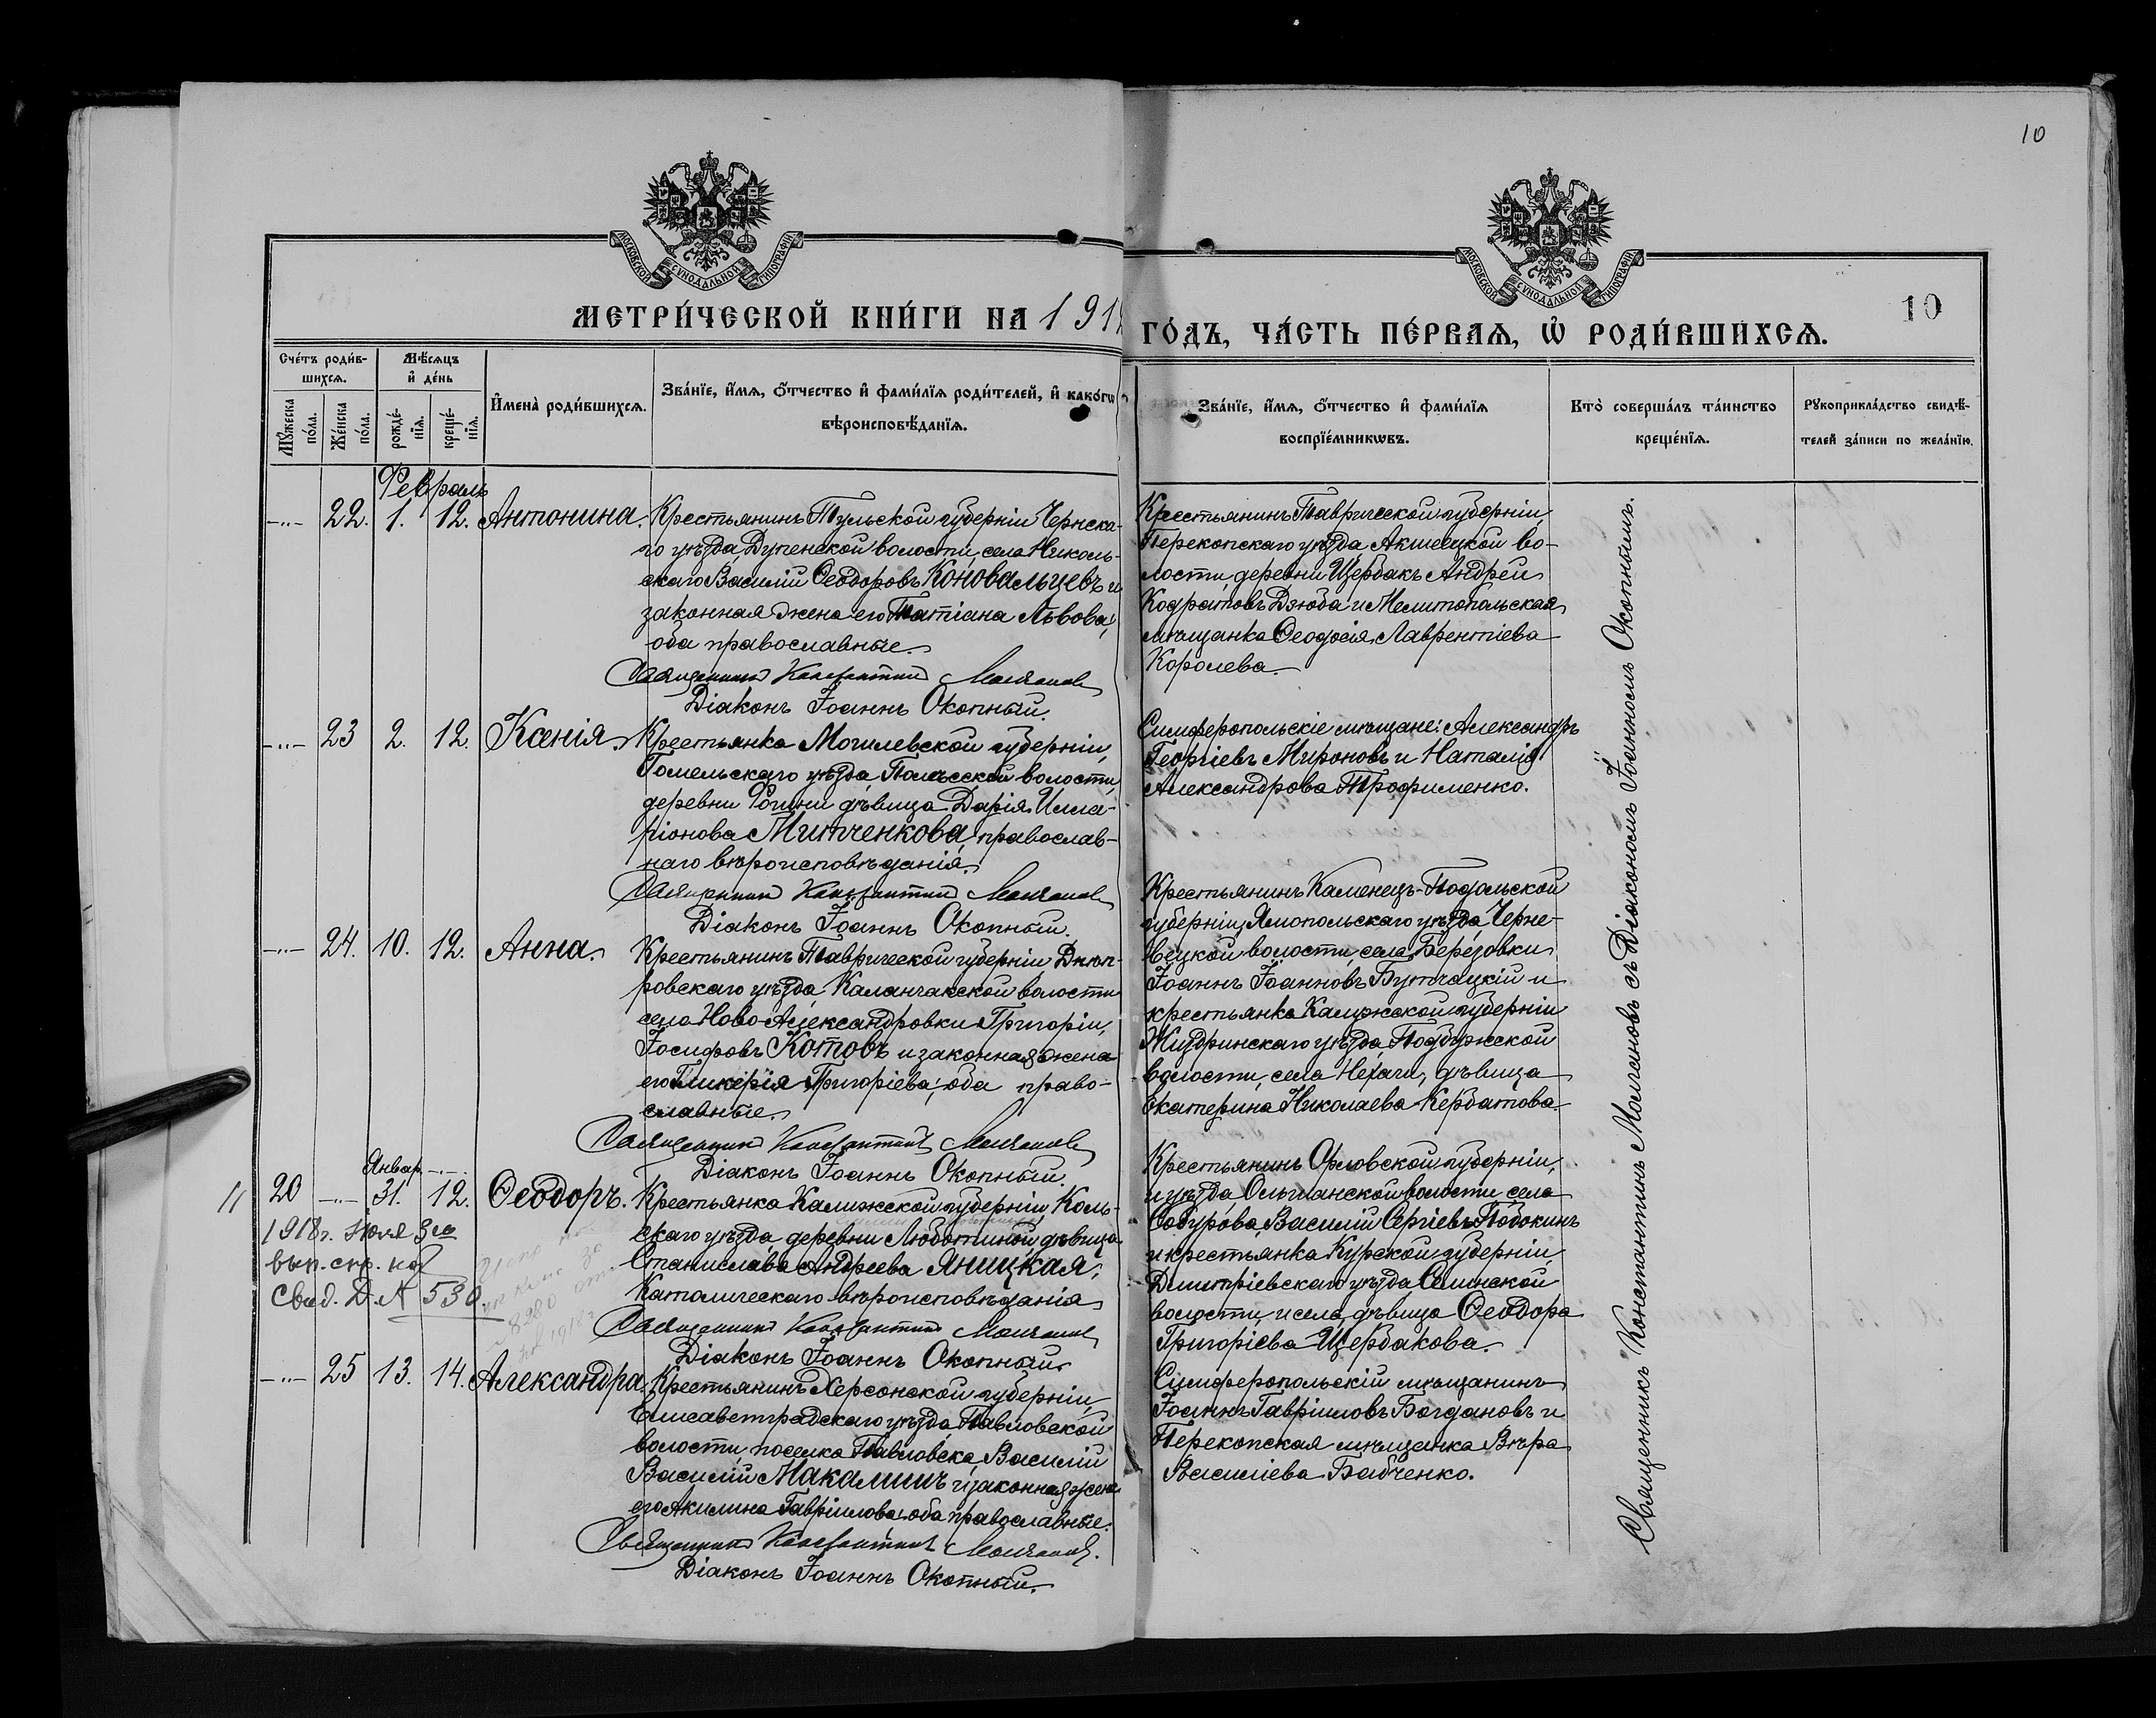 10
МОСКОВСКОЙ СѴНОДАЛЬНОЙ ТИПОГРАФІИ
МОСКОВСКОЙ СѴНОДАЛЬНОЙ ТИПОГРАФІИ
МЕТРИ́ЧЕСКОЙ КНИ́ГИ НА 191
ГО́ДЪ, ЧА́СТЬ ПЕ́РВАѦ, Ѡ҆ РОДИ́ВШИХСѦ.
10
Сче́тъ роди́вшихсѧ.
Мꙋ́жеска по́ла.
Же́нска по́ла.
Мѣ́сѧцъ и҆ де́нь
рожде́нїѧ.
креще́нїѧ.
И҆мена̀ роди́вшихсѧ.
Зва́нїе, и҆́мѧ, ѻ҆́тчество и҆ фами́лїѧ роди́телей, и҆ како́гѡ
вѣроисповѣ́данїѧ.
Зва́нїе, и҆́мѧ, ѻ҆́тчество и҆ фами́лїѧ
воспрїе́мникѡвъ.
Кто̀ соверша́лъ та́инство
креще́нїѧ.
Рꙋкоприкла́дство свидѣ́-
телей за́писи по жела́нїю.
Февраль
22. 1. 12. Антонина.
Крестьянинъ Тульской губерніи Чернска-
го уѣзда, Дупенской волости, села Николь-
скаго Василій Ѳеодоровъ Коновальцевъ и
законная жена его Татіана Львова,
оба православные.
Священникъ Константинъ Молчановъ
Діаконъ Іоаннъ Окопный.
Крестьянинъ Таврической губерніи,
Перекопскаго уѣзда, Акшеецкой во-
лости, деревни Щербакъ Андрей
Кодратовъ Дзюба и Мелитопольская
мѣщанка Ѳеодосія Лаврентіева
Королева.
23 2. 12. Ксенія.
Крестьянка Могилевской губерніи,
Гомельскаго уѣзда, волости,
деревни дѣвица Дарія Илла-
ріонова Митченкова, православ-
наго вѣроисповѣданія.
Священникъ Константинъ Молчановъ
Діаконъ Іоаннъ Окопный.
Симферопольскіе мѣщане: Александръ
Георгіевъ Мироновъ и Наталія
Александрова Трофименко.
24. 10. 12. Анна.
Крестьянинъ Таврической губерніи Днѣп-
ровскаго уѣзда, Каланчакской волости
села Ново-Александровки Григорій
Іосифовъ Котовъ и законная жена
его Гликерія Григоріева; оба право-
славные.
Священникъ Константинъ Молчановъ
Діаконъ Іоаннъ Окопный.
Крестьянинъ Каменецъ-Подольской
губерніи, Ямпольскаго уѣзда, Черне-
вецкой волости, села Березовки
Іоаннъ Іоанновъ Бутчацкій и
крестьянка Калужской губерніи
Жиздринскаго уѣзда, Подбужской
волости, села Нехачи, дѣвица
Екатерина Николаева Кербатова.
Январ.
11 20 31. 12. Ѳеодоръ.
1918г. Юля 3го
вып. спр. на
Свид. Д. № 530.
Крестьянка Калишской губерніи Коль-
скаго уѣзда деревни Люботиной дѣвица
Станислава Андреева Яницкая,
Католическаго вѣроисповѣданія
Священникъ Константинъ Молчановъ
Діаконъ Іоаннъ Окопный.
Крестьянинъ Орловской губерніи,
и уѣзда Ольшанской волости села
Сабурова, Василій Сергіевъ Побокинъ
и крестьянка Курской губерніи,
Димитріевскаго уѣзда, Селинской
волости и села, дѣвица Ѳеодора
Григоріева Щербакова.
25 13. 14. Александра.
Крестьянинъ Херсонской губерніи,
Елисаветградскаго уѣзда, Павловской
волости, поселка Павловска, Василій
Василій Макалишъ и законная жена
его Акилина Гавріилова, оба православные.
Священникъ Константинъ Молчановъ.
Діаконъ Іоаннъ Окопный.
Симферопольскій мѣщанинъ
Іоаннъ Гавріиловъ Богдановъ и
Перекопская мѣщанка Вѣра
Василіева Бабченко.
Священникъ Константинъ Молчановъ съ Діакономъ Іоанномъ Окопнымъ.